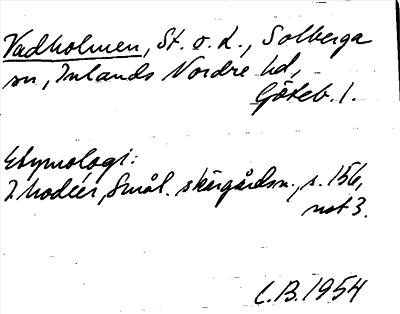 Vadholmen, St. o. L., Solberga
sn, Inlands Nordre hd,
Göteb. l.
Etymologi:
Modéer, Smål. skärgårdsn., s. 156,
not 3.
C.B. 1954